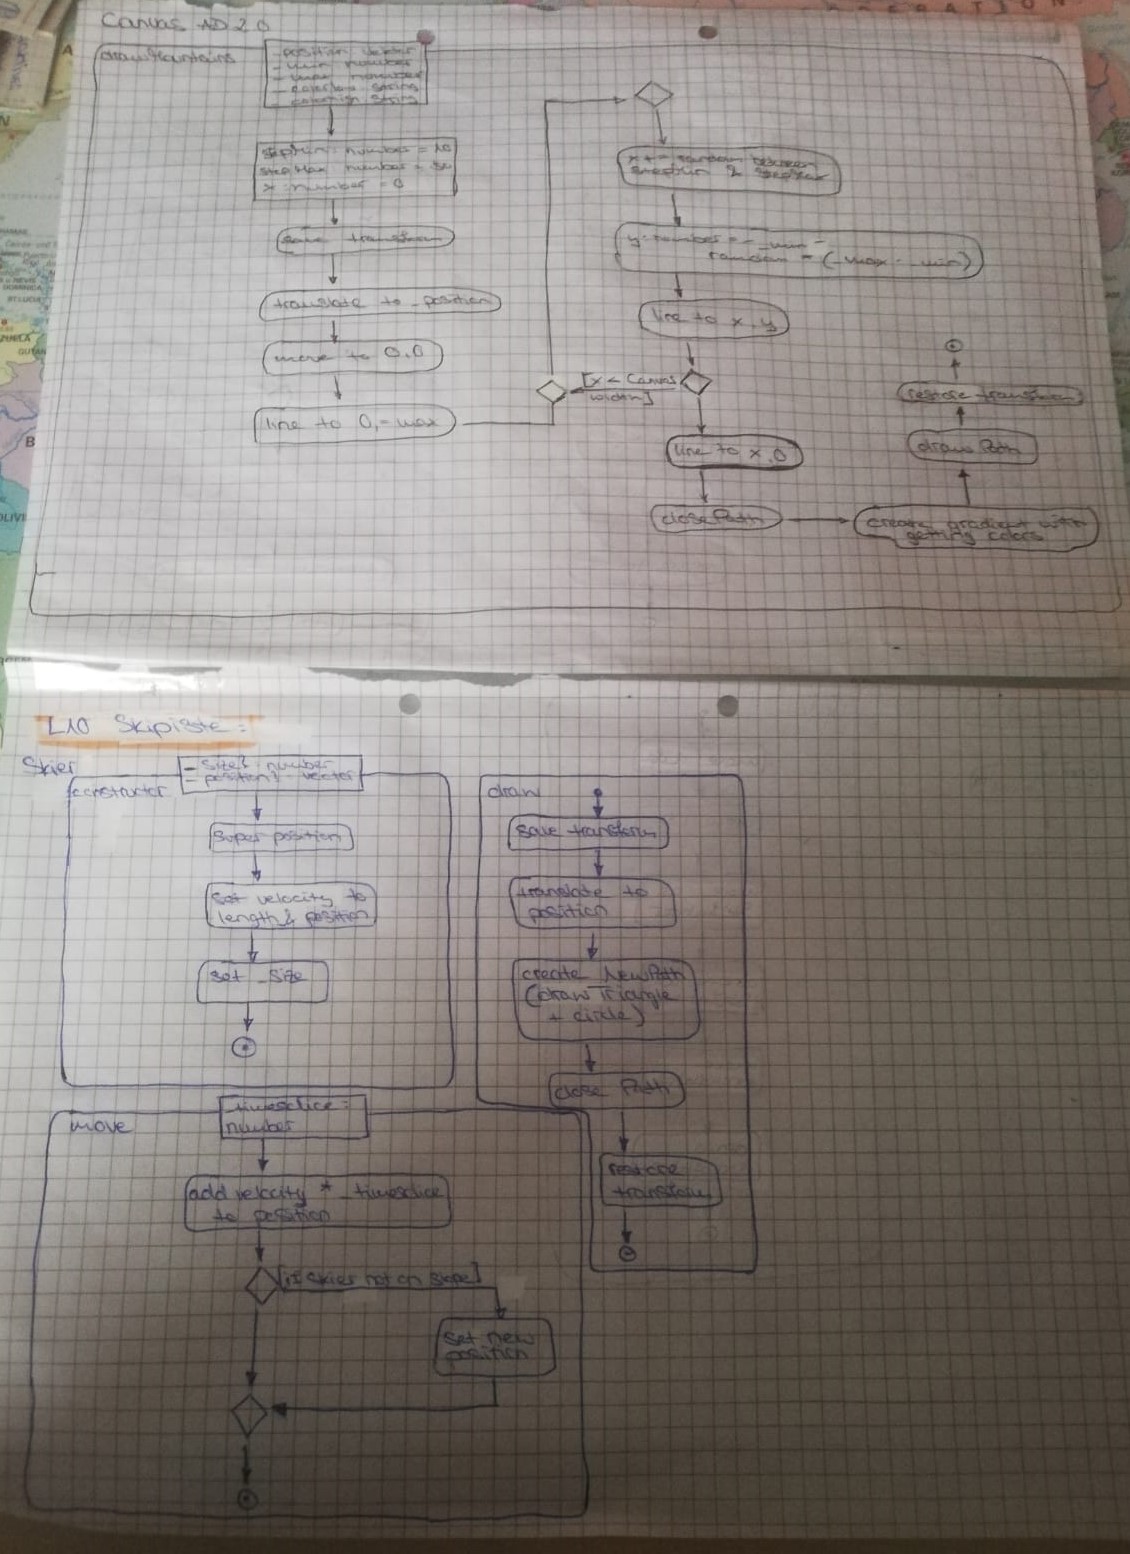 Canvas AD 2.0
drawMountains
- position: vector
- _min: number
- _max: number
stepMin: number = 10
stepMax: number = 50
x: number = 0
save transform
translate to _position
move to 0,0
line to 0,-max
x += random between
stepMin & stepMax
y: number = - _min -
random * (_max - _min)
line to x,y
[x < Canvas
width]
line to x,0
closePath
create gradient with
getting colors
draw Path
restore transform
L10 Skipiste:
Skier
- Size?: number
- position?: vector
constructor
super position
set velocity to
length & position
set _size
draw
save transform
translate to
position
create NewPath
(draw Triangle
+ circle)
close Path
restore
transform
move
_timeslice:
number
add velocity * _timeslice
to position
[if Skier not on slope]
set new
position